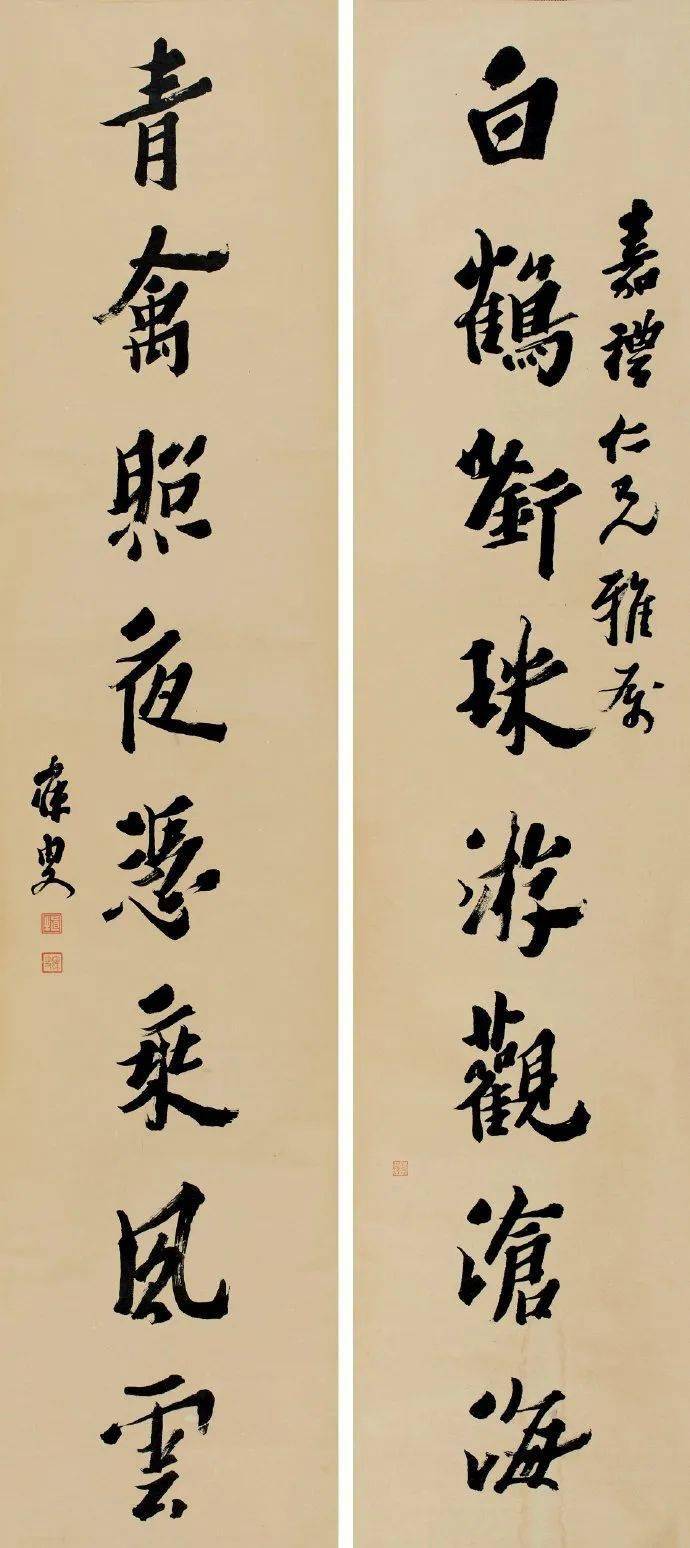 嘉禮仁兄雅屬
白鶴銜珠游觀滄海
青禽照夜憑乘風雲
寐叟